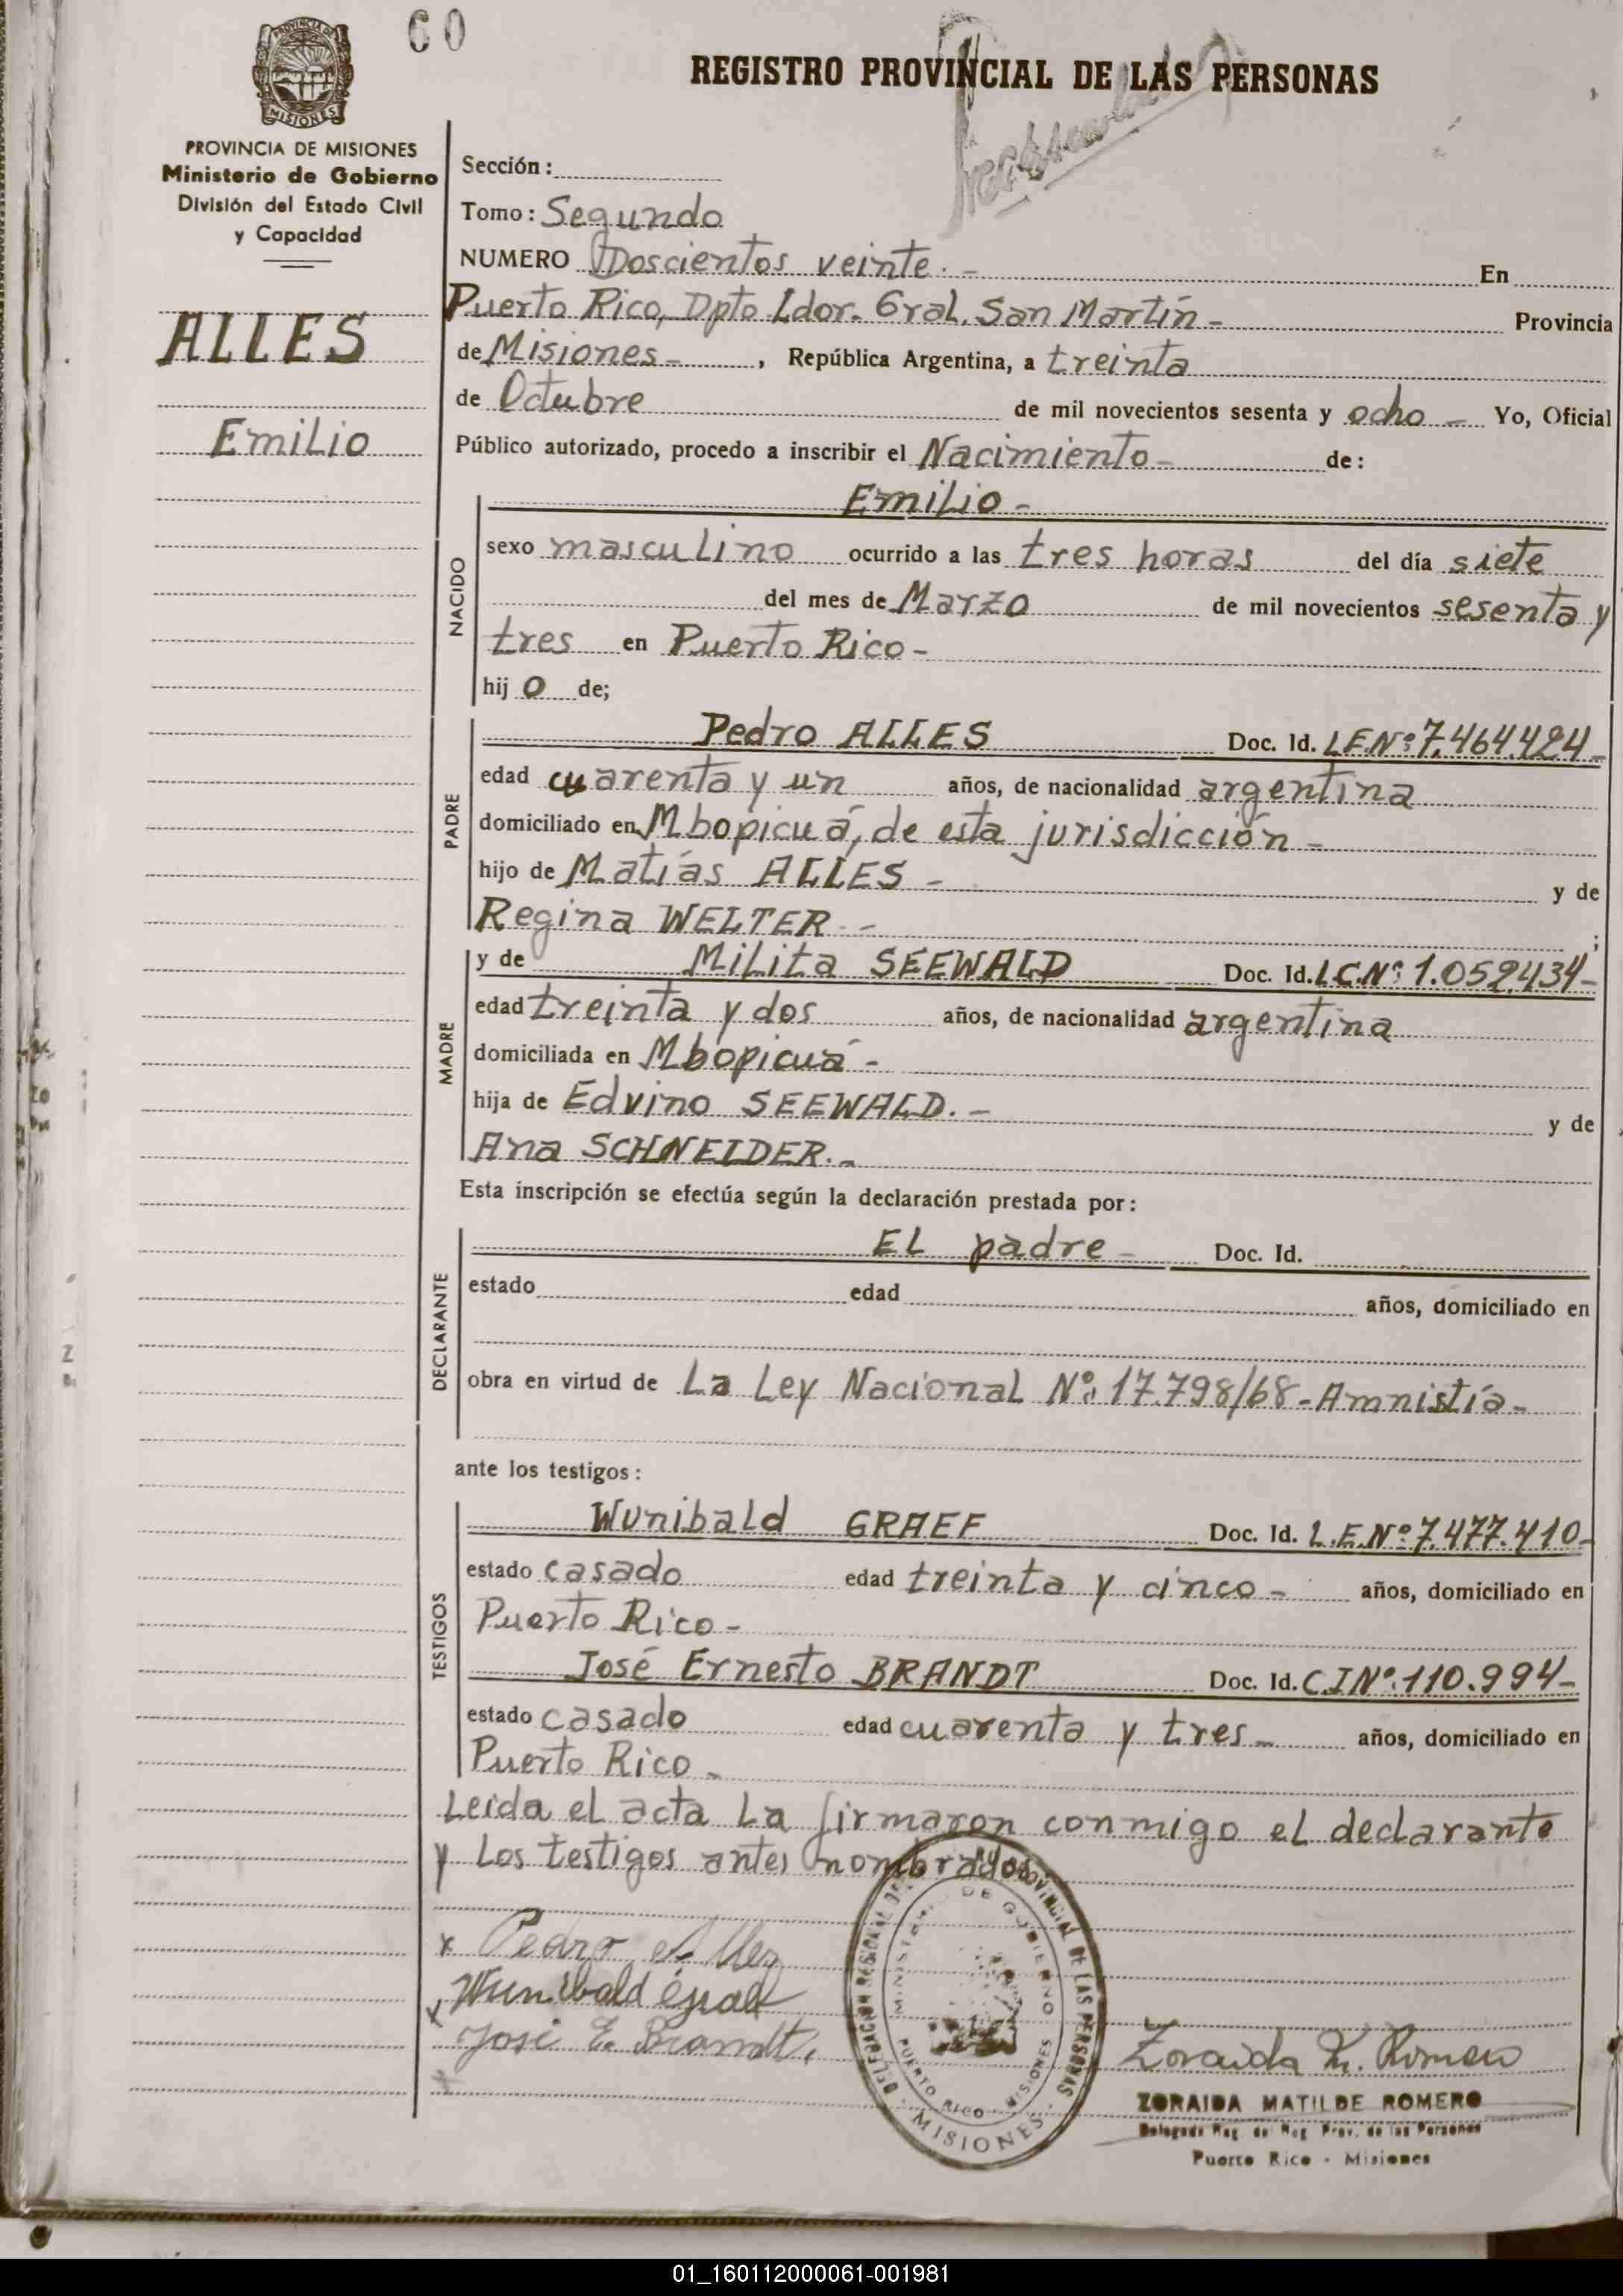 60
REGISTRO PROVINCIAL DE LAS PERSONAS
MISIONES
PROVINCIA DE MISIONES
Ministerio de Gobierno
División del Estado Civil
y Capacidad
ALLES
Emilio
Sección:
Tomo: Segundo
NUMERO Doscientos veinte. - En
Puerto Rico, Dpto Ldor. Gral. San Martín - Provincia
de Misiones - , República Argentina, a treinta
de Octubre de mil novecientos sesenta y ocho - Yo, Oficial
Público autorizado, procedo a inscribir el Nacimiento - de:
NACIDO
Emilio -
sexo masculino ocurrido a las tres horas del día siete
del mes de Marzo de mil novecientos sesenta y
tres en Puerto Rico -
hij o de;
PADRE
Pedro ALLES Doc. Id. L.E.Nº 7.464.424 -
edad cuarenta y un años, de nacionalidad argentina
domiciliado en Mbopicuá, de esta jurisdicción -
hijo de Matías ALLES - y de
Regina WELTER. - ;
MADRE
y de Milita SEEWALD Doc. Id. L.C.Nº 1.052.434 -
edad treinta y dos años, de nacionalidad argentina
domiciliada en Mbopicuá -
hija de Edvino SEEWALD. - y de
Ana SCHNEIDER. -
Esta inscripción se efectúa según la declaración prestada por:
DECLARANTE
El padre - Doc. Id.
estado edad años, domiciliado en
obra en virtud de La Ley Nacional Nº 17.798/68 - Amnistía -
ante los testigos:
TESTIGOS
Wunibald GRAEF Doc. Id. L.E.Nº 7.477.410 -
estado casado edad treinta y cinco - años, domiciliado en
Puerto Rico -
José Ernesto BRANDT Doc. Id. C.I.Nº 110.994 -
estado casado edad cuarenta y tres - años, domiciliado en
Puerto Rico -
Leida el acta La firmaron conmigo el declarante
y Los testigos antes nombrados
x Pedro Alles
x Wunibald Graef
José E. Brandt.
DELEGACION REGIONAL DEL REGISTRO PROVINCIAL DE LAS PERSONAS
MINISTERIO DE GOBIERNO
PUERTO RICO - MISIONES
- MISIONES -
Zoraida M. Romero
ZORAIDA MATILDE ROMERO
Delegada Reg. del Reg. Prov. de las Personas
Puerto Rico - Misiones
01_160112000061-001981